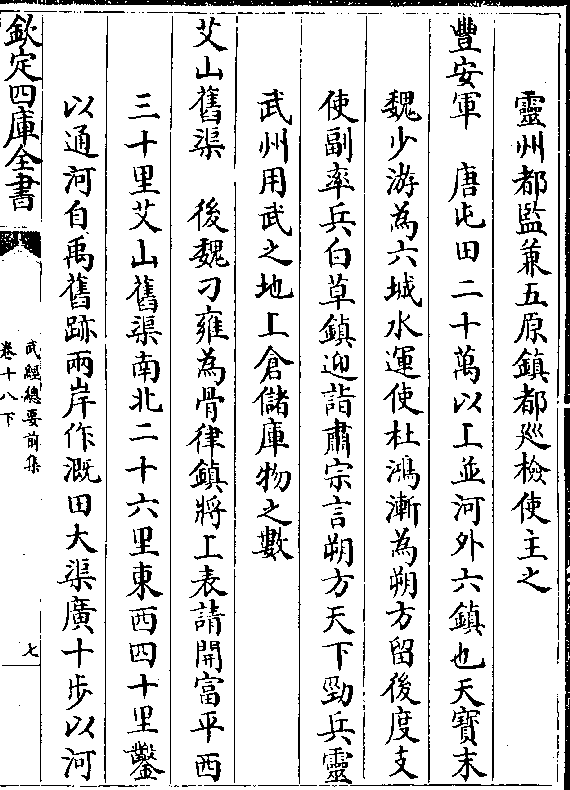 靈州都監兼五原鎮都廵檢使主之
豐安軍　唐屯田二十萬以上並河外六鎮也天寶末
魏少游為六城水運使杜鴻漸為朔方留後度支
使副率兵白草鎮迎詣肅宗言朔方天下勁兵靈
武州用武之地上倉儲庫物之數
艾山舊渠　後魏刁雍為骨律鎮將上表請開富平西
三十里艾山舊渠南北二十六里東西四十里鑿
以通河自禹舊跡兩岸作溉田大渠廣十步以河
欽定四庫全書
武經總要前集
卷十八下
七